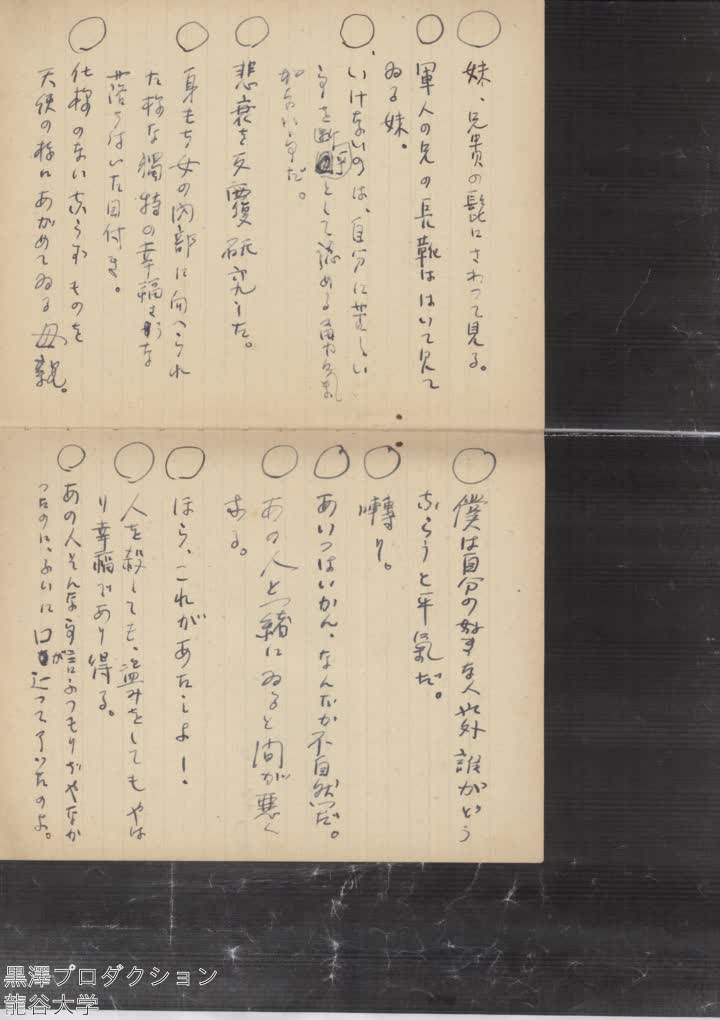 ○ 妹、兄貴の髭にさわつて見る。
○ 軍人の兄の長靴はいて見て
ゐる妹。
○ いけないのは、自分に苦しい
事を断乎として認める勇気が
ない事だ。
○ 悲哀を反覆研究した。
○ 身もち女の内部に向へられ
た様な獨特の幸福さうな
落ちついた目付き。
○ 仕様のないならずものを
天使の様にあがめてゐる母親。
○ 僕は自分の好きな人以外誰がどう
ならうと平氣だ。
○ 囀り。
○ あいつはいかん、なんだか不自然だ。
○ あの人と一緒にゐると間が悪く
なる。
○ ほら、これがあたしよ!
○ 人を殺しても、盗みをしてもやは
り幸福であり得る。
○ あの人そんな事言ふつもりぢやなか
つたのに、ふいに口が辷つて了つたのよ。
黒澤プロダクション
龍谷大学